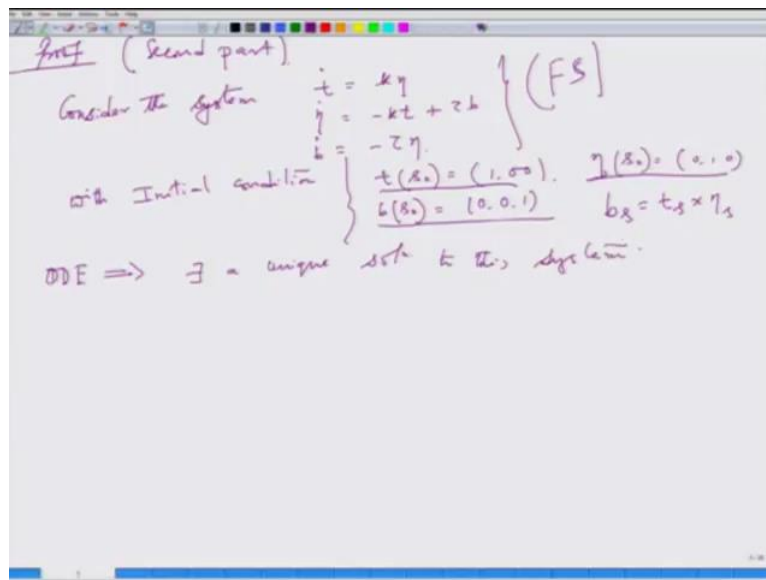 Proof (Second part)
Consider the system ṫ = kη
η̇ = -kt + τb
ḃ = -τη. } (FS)
with Initial condition { t(s₀) = (1,00). η(s₀) = (0,1,0)
b(s₀) = (0,0,1) b_s = t_s × η_s
ODE ⟹ ∃ a unique solⁿ to this system.